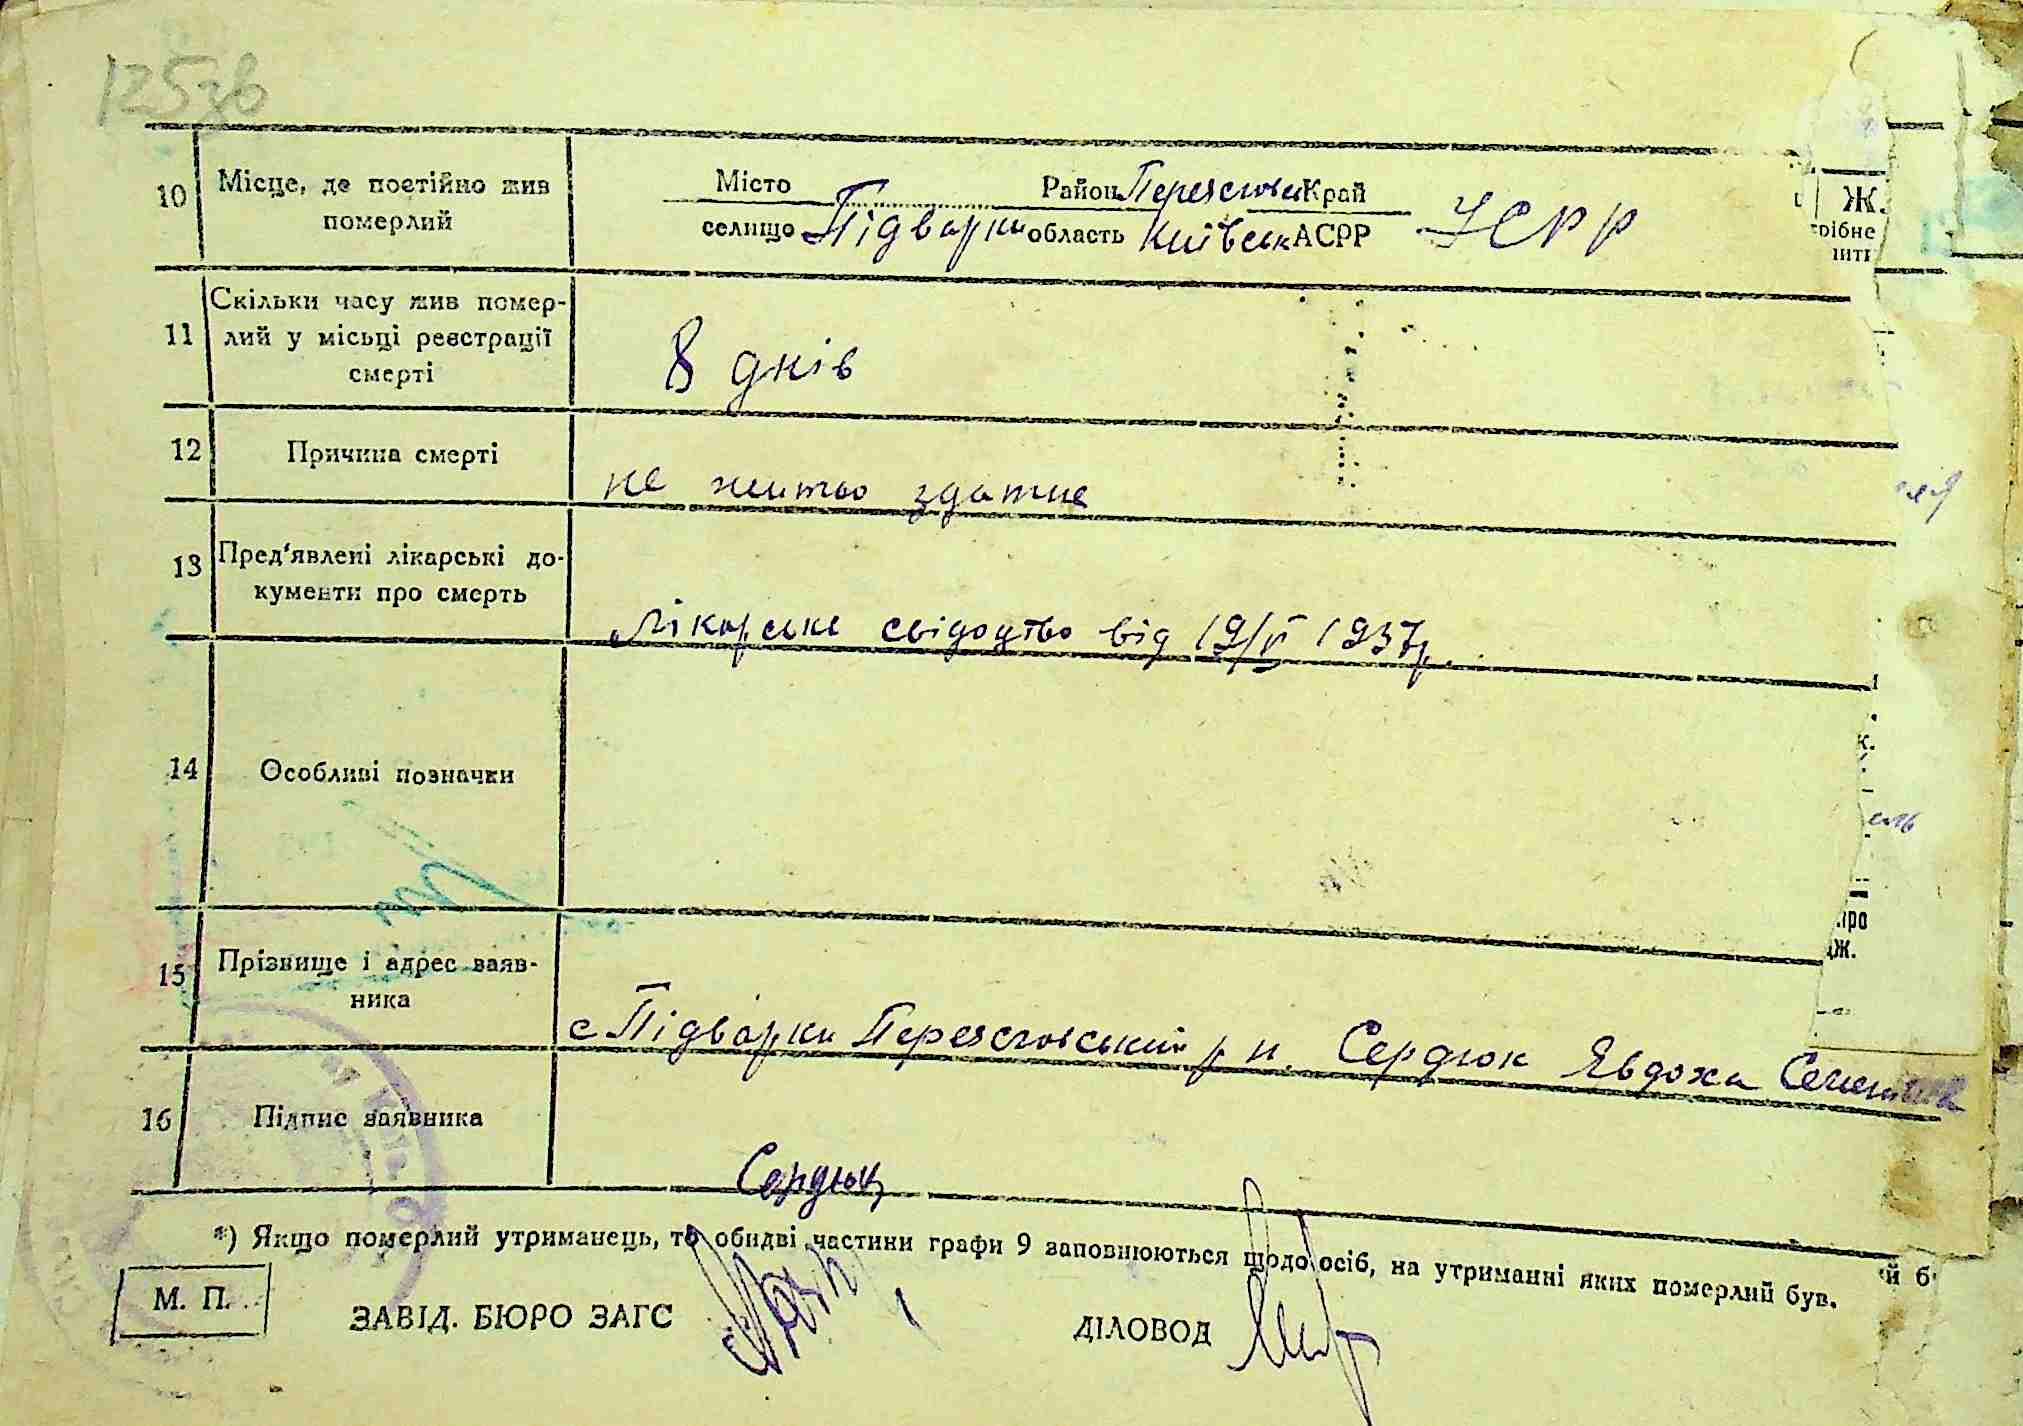 125зв
10 Місце, де постійно жив померлий
Місто Район Переяслов Край
селище Підварки область Київськ АСРР УСРР
11 Скільки часу жив помер-
лий у місьці реєстрації
смерті
8 днів
12 Причина смерті
не житьо здатне
13 Пред'явлені лікарські до-
кументи про смерть
Лікарське свідоцтво від 19/VI 1937р.
14 Особливі позначки
15 Прізвище і адрес заяв-
ника
с Підварки Переясловський р н. Сердюк Явдоха
16 Підпис заявника
Сердюк
*) Якщо померлий утриманець, то обидві частини графи 9 заповнюються щодо осіб, на утриманні яких померлий був.
М. П.
ЗАВІД. БЮРО ЗАГС
ДІЛОВОД
Ж.